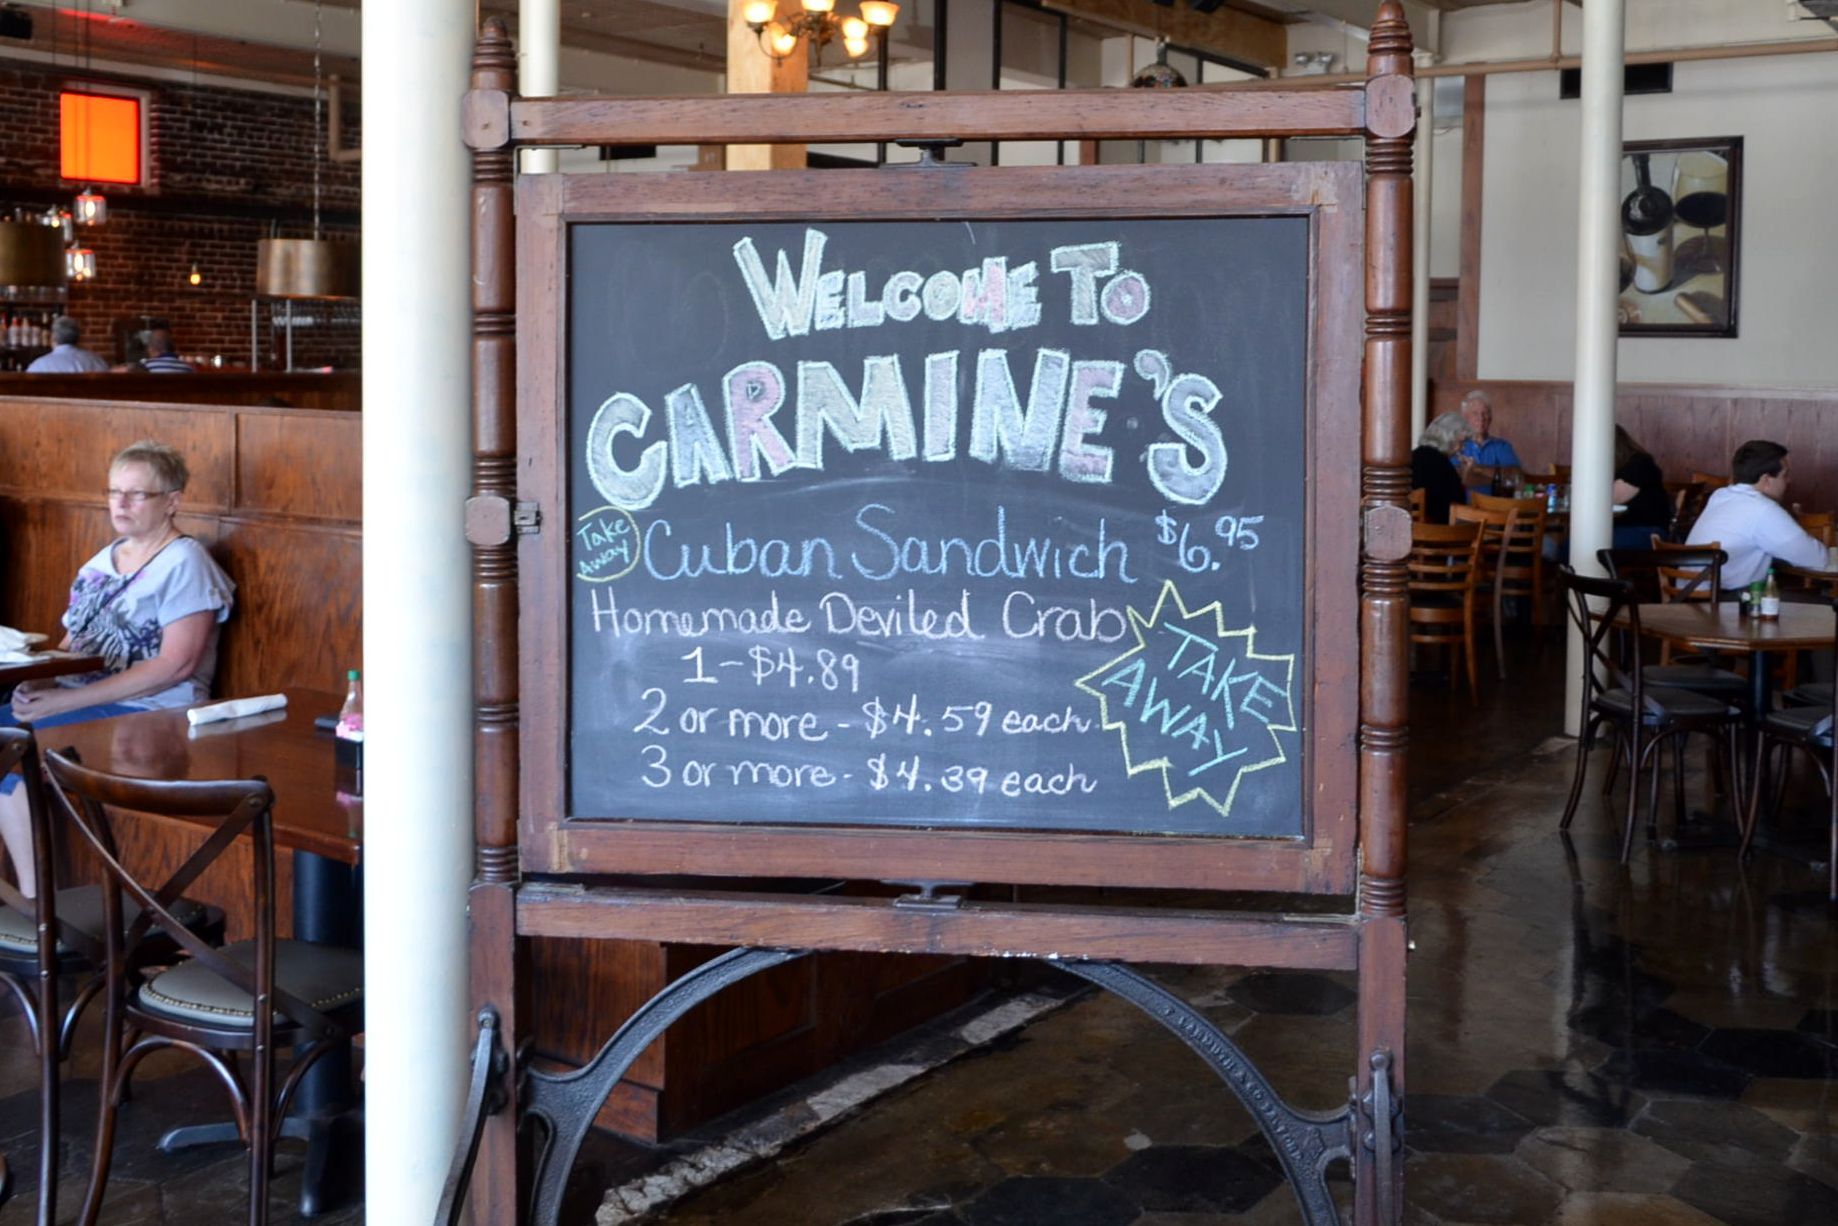 WELCOME TO
CARMINE'S
Take Away
Cuban Sandwich $6.95
Homemade Deviled Crab
1-$4.89
2 or more - $4.59 each
3 or more - $4.39 each
TAKE
AWAY